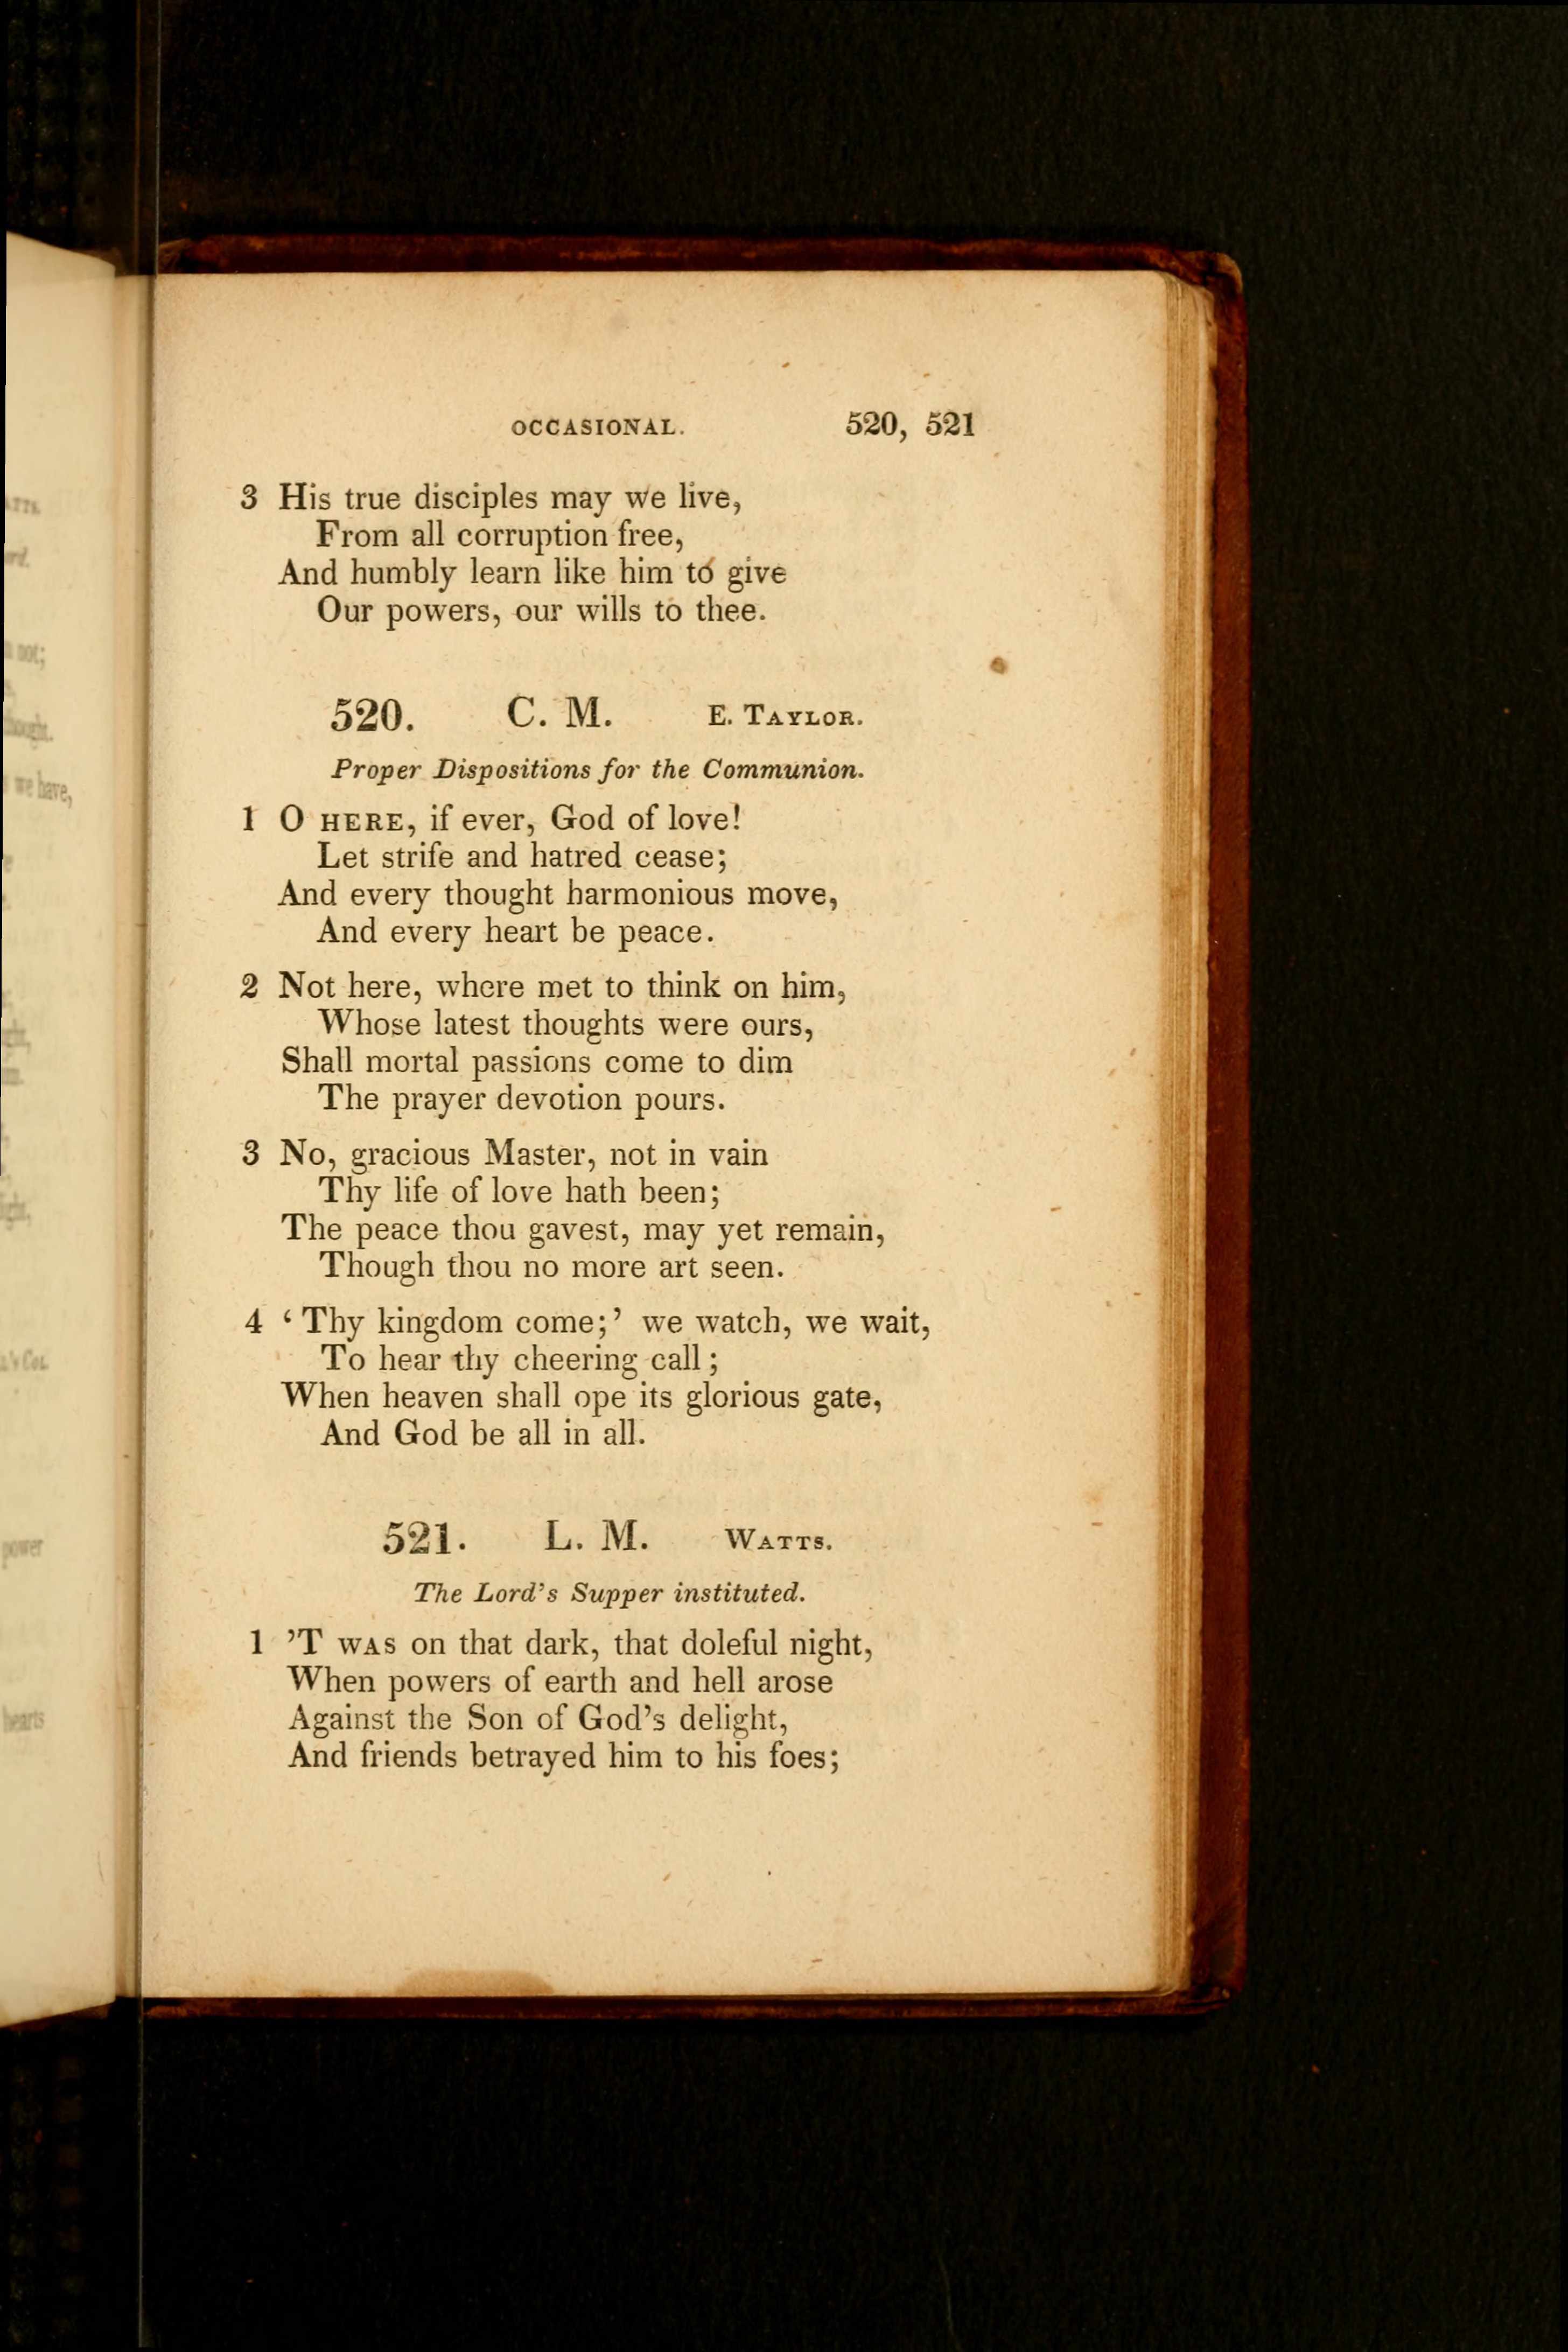 OCCASIONAL. 520, 521
3 His true disciples may we live,
From all corruption free,
And humbly learn like him to give
Our powers, our wills to thee.
520. C. M. E. TAYLOR.
Proper Dispositions for the Communion.
1 O HERE, if ever, God of love!
Let strife and hatred cease;
And every thought harmonious move,
And every heart be peace.
2 Not here, where met to think on him,
Whose latest thoughts were ours,
Shall mortal passions come to dim
The prayer devotion pours.
3 No, gracious Master, not in vain
Thy life of love hath been;
The peace thou gavest, may yet remain,
Though thou no more art seen.
4 ‘Thy kingdom come;’ we watch, we wait,
To hear thy cheering call;
When heaven shall ope its glorious gate,
And God be all in all.
521. L. M. WATTS.
The Lord’s Supper instituted.
1 ’T WAS on that dark, that doleful night,
When powers of earth and hell arose
Against the Son of God’s delight,
And friends betrayed him to his foes;